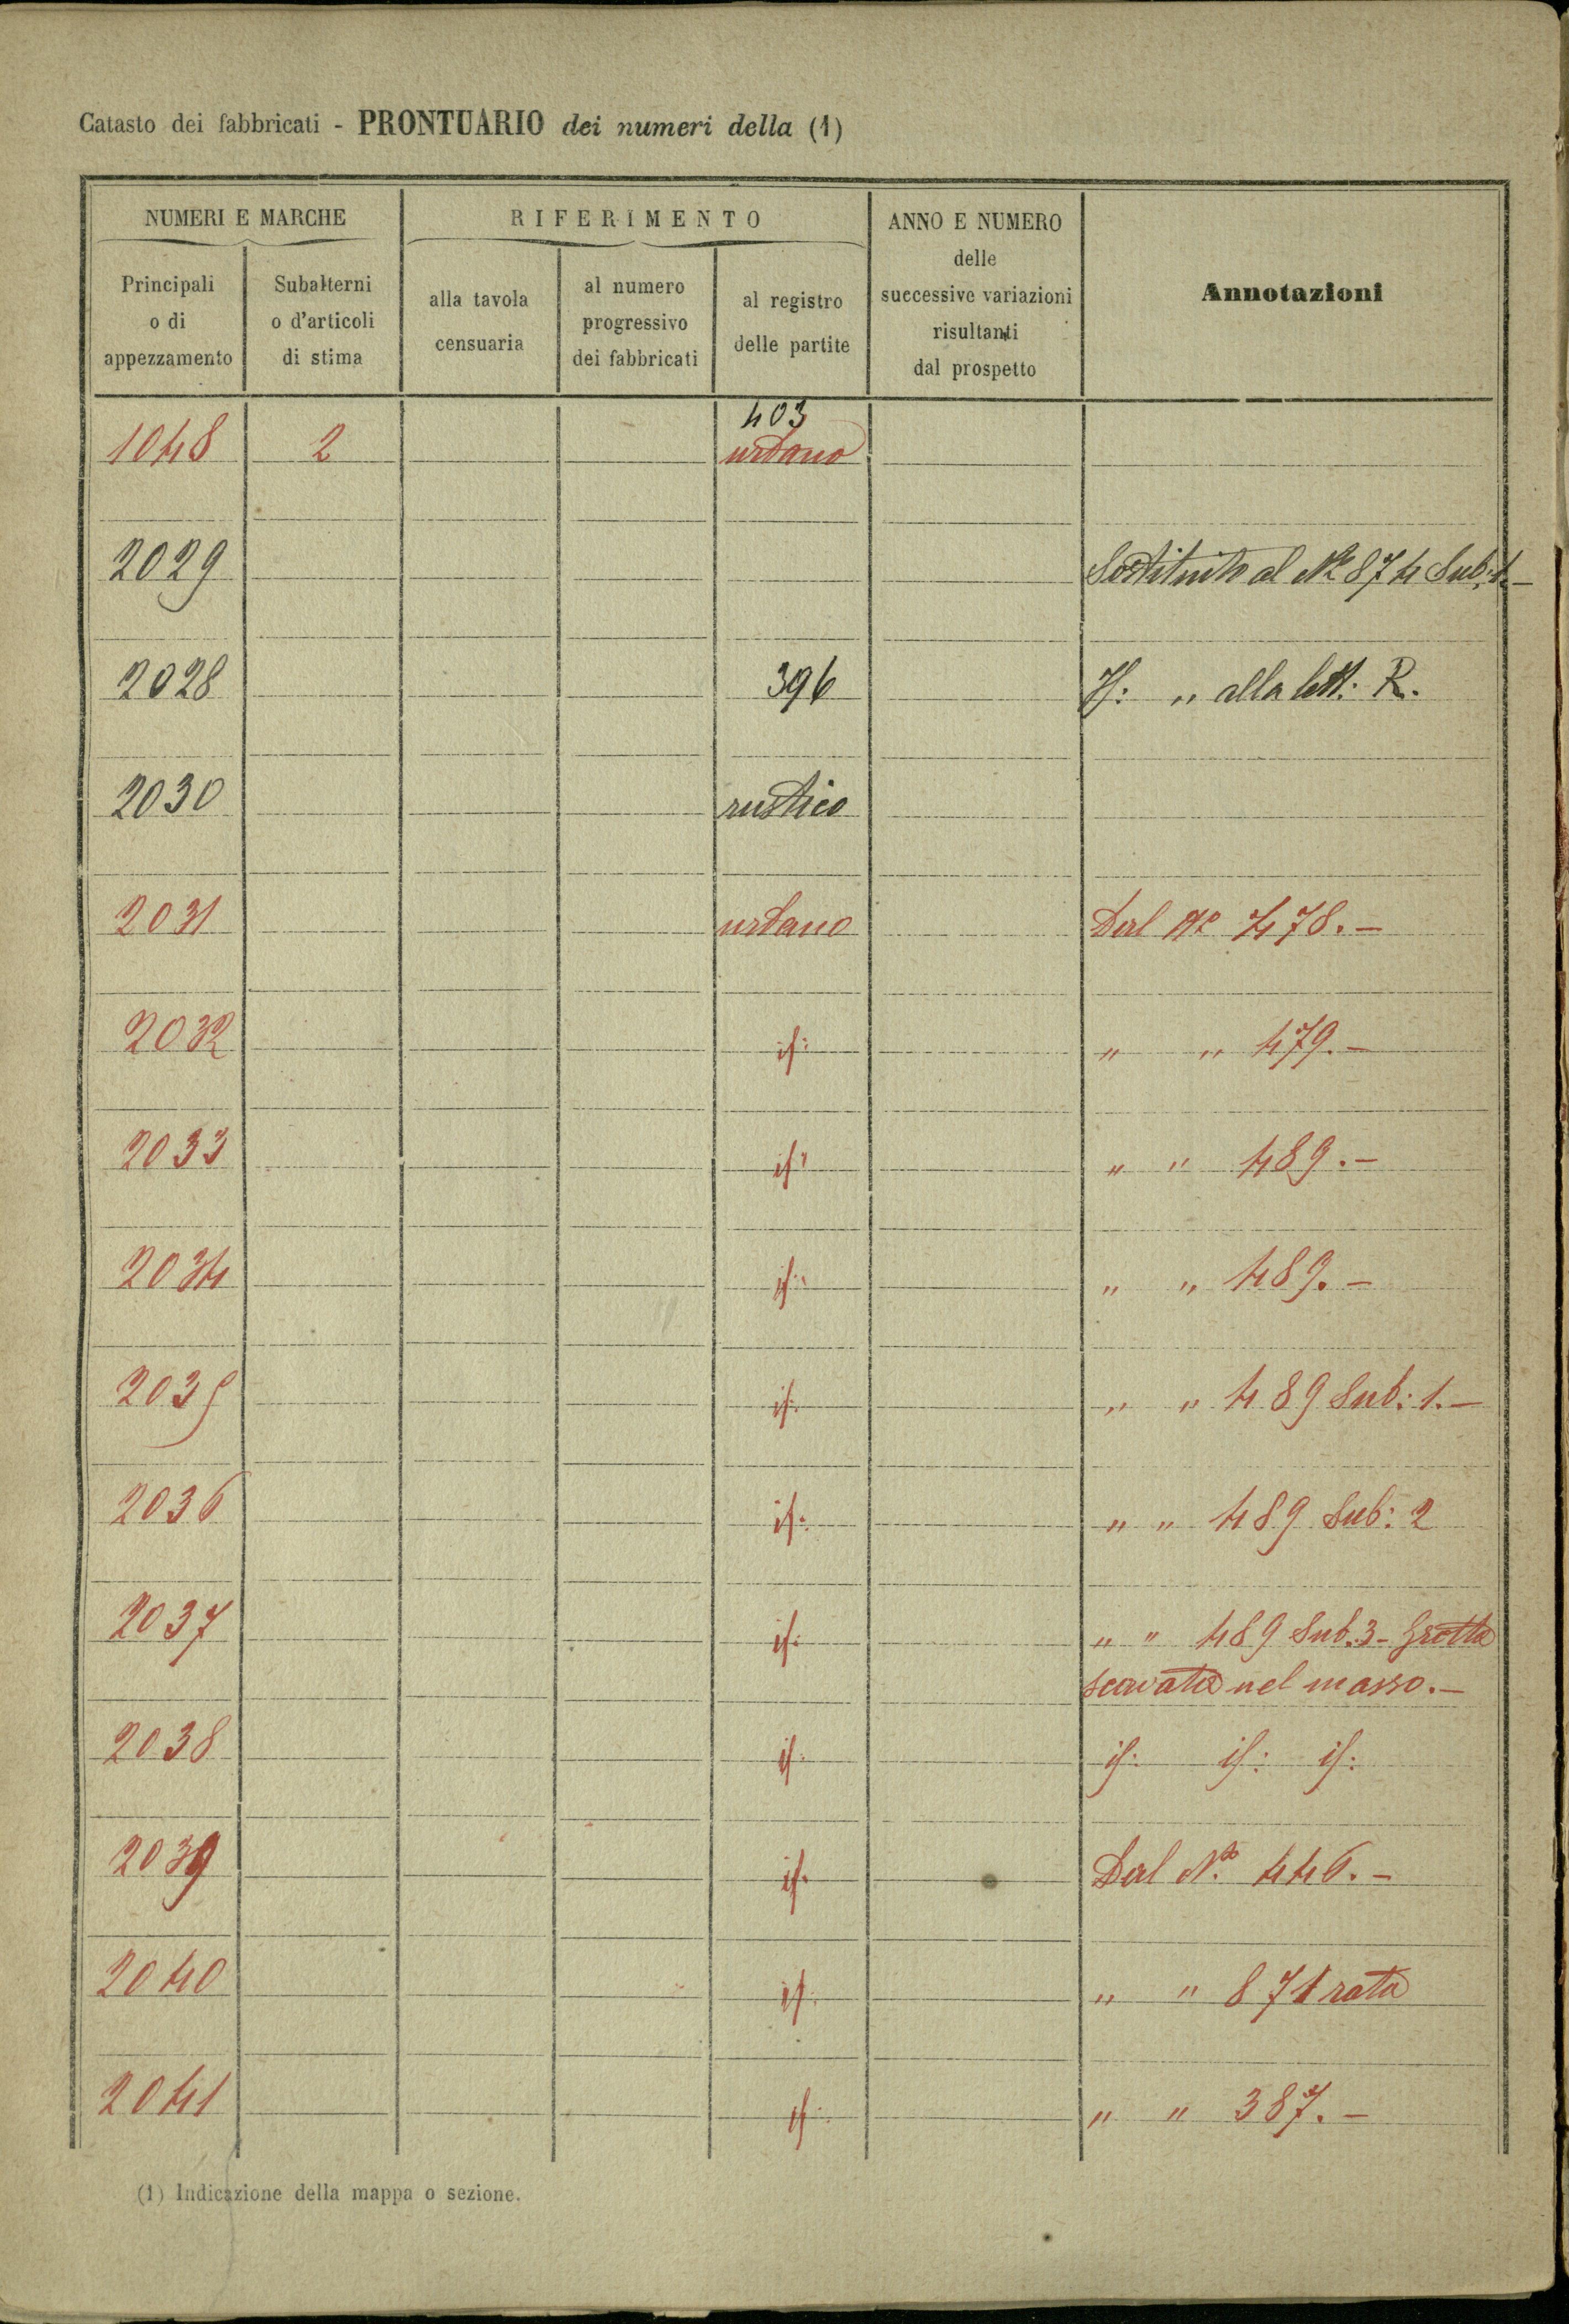 Catasto dei fabbricati - PRONTUARIO dei numeri della (1)
NUMERI E MARCHE
RIFERIMENTO
ANNO E NUMERO
delle
successive variazioni
risultanti
dal prospetto
Annotazioni
Principali
o di
appezzamento
Subalterni
o d'articoli
di stima
alla tavola
censuaria
al numero
progressivo
dei fabbricati
al registro
delle partite
403
1048 2 urbano
2029 Sostituito al N.º 874 Sub: 1.-
2028 396 If: „ alla lett: R.
2030 rustico
2031 urbano Dal Nº 478.-
2032 if: „ „ 479.-
2033 if: „ „ 489.-
2034 if: „ „ 489.-
2035 if: „ „ 489 Sub: 1.-
2036 if: „ „ 489 Sub: 2
2037 if: „ „ 489 Sub. 3 - Grotta
scavata nel masso.-
2038 if: if: if: if:
2039 if: Dal N.º 446.-
2040 if: „ „ 871 rata
2041 if: „ „ 387.-
(1) Indicazione della mappa o sezione.